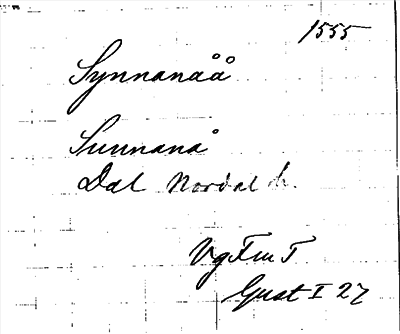 1555
Synnanåå
Sunnanå
Dal Nordal h.
Vg Fm T
Gust I 27